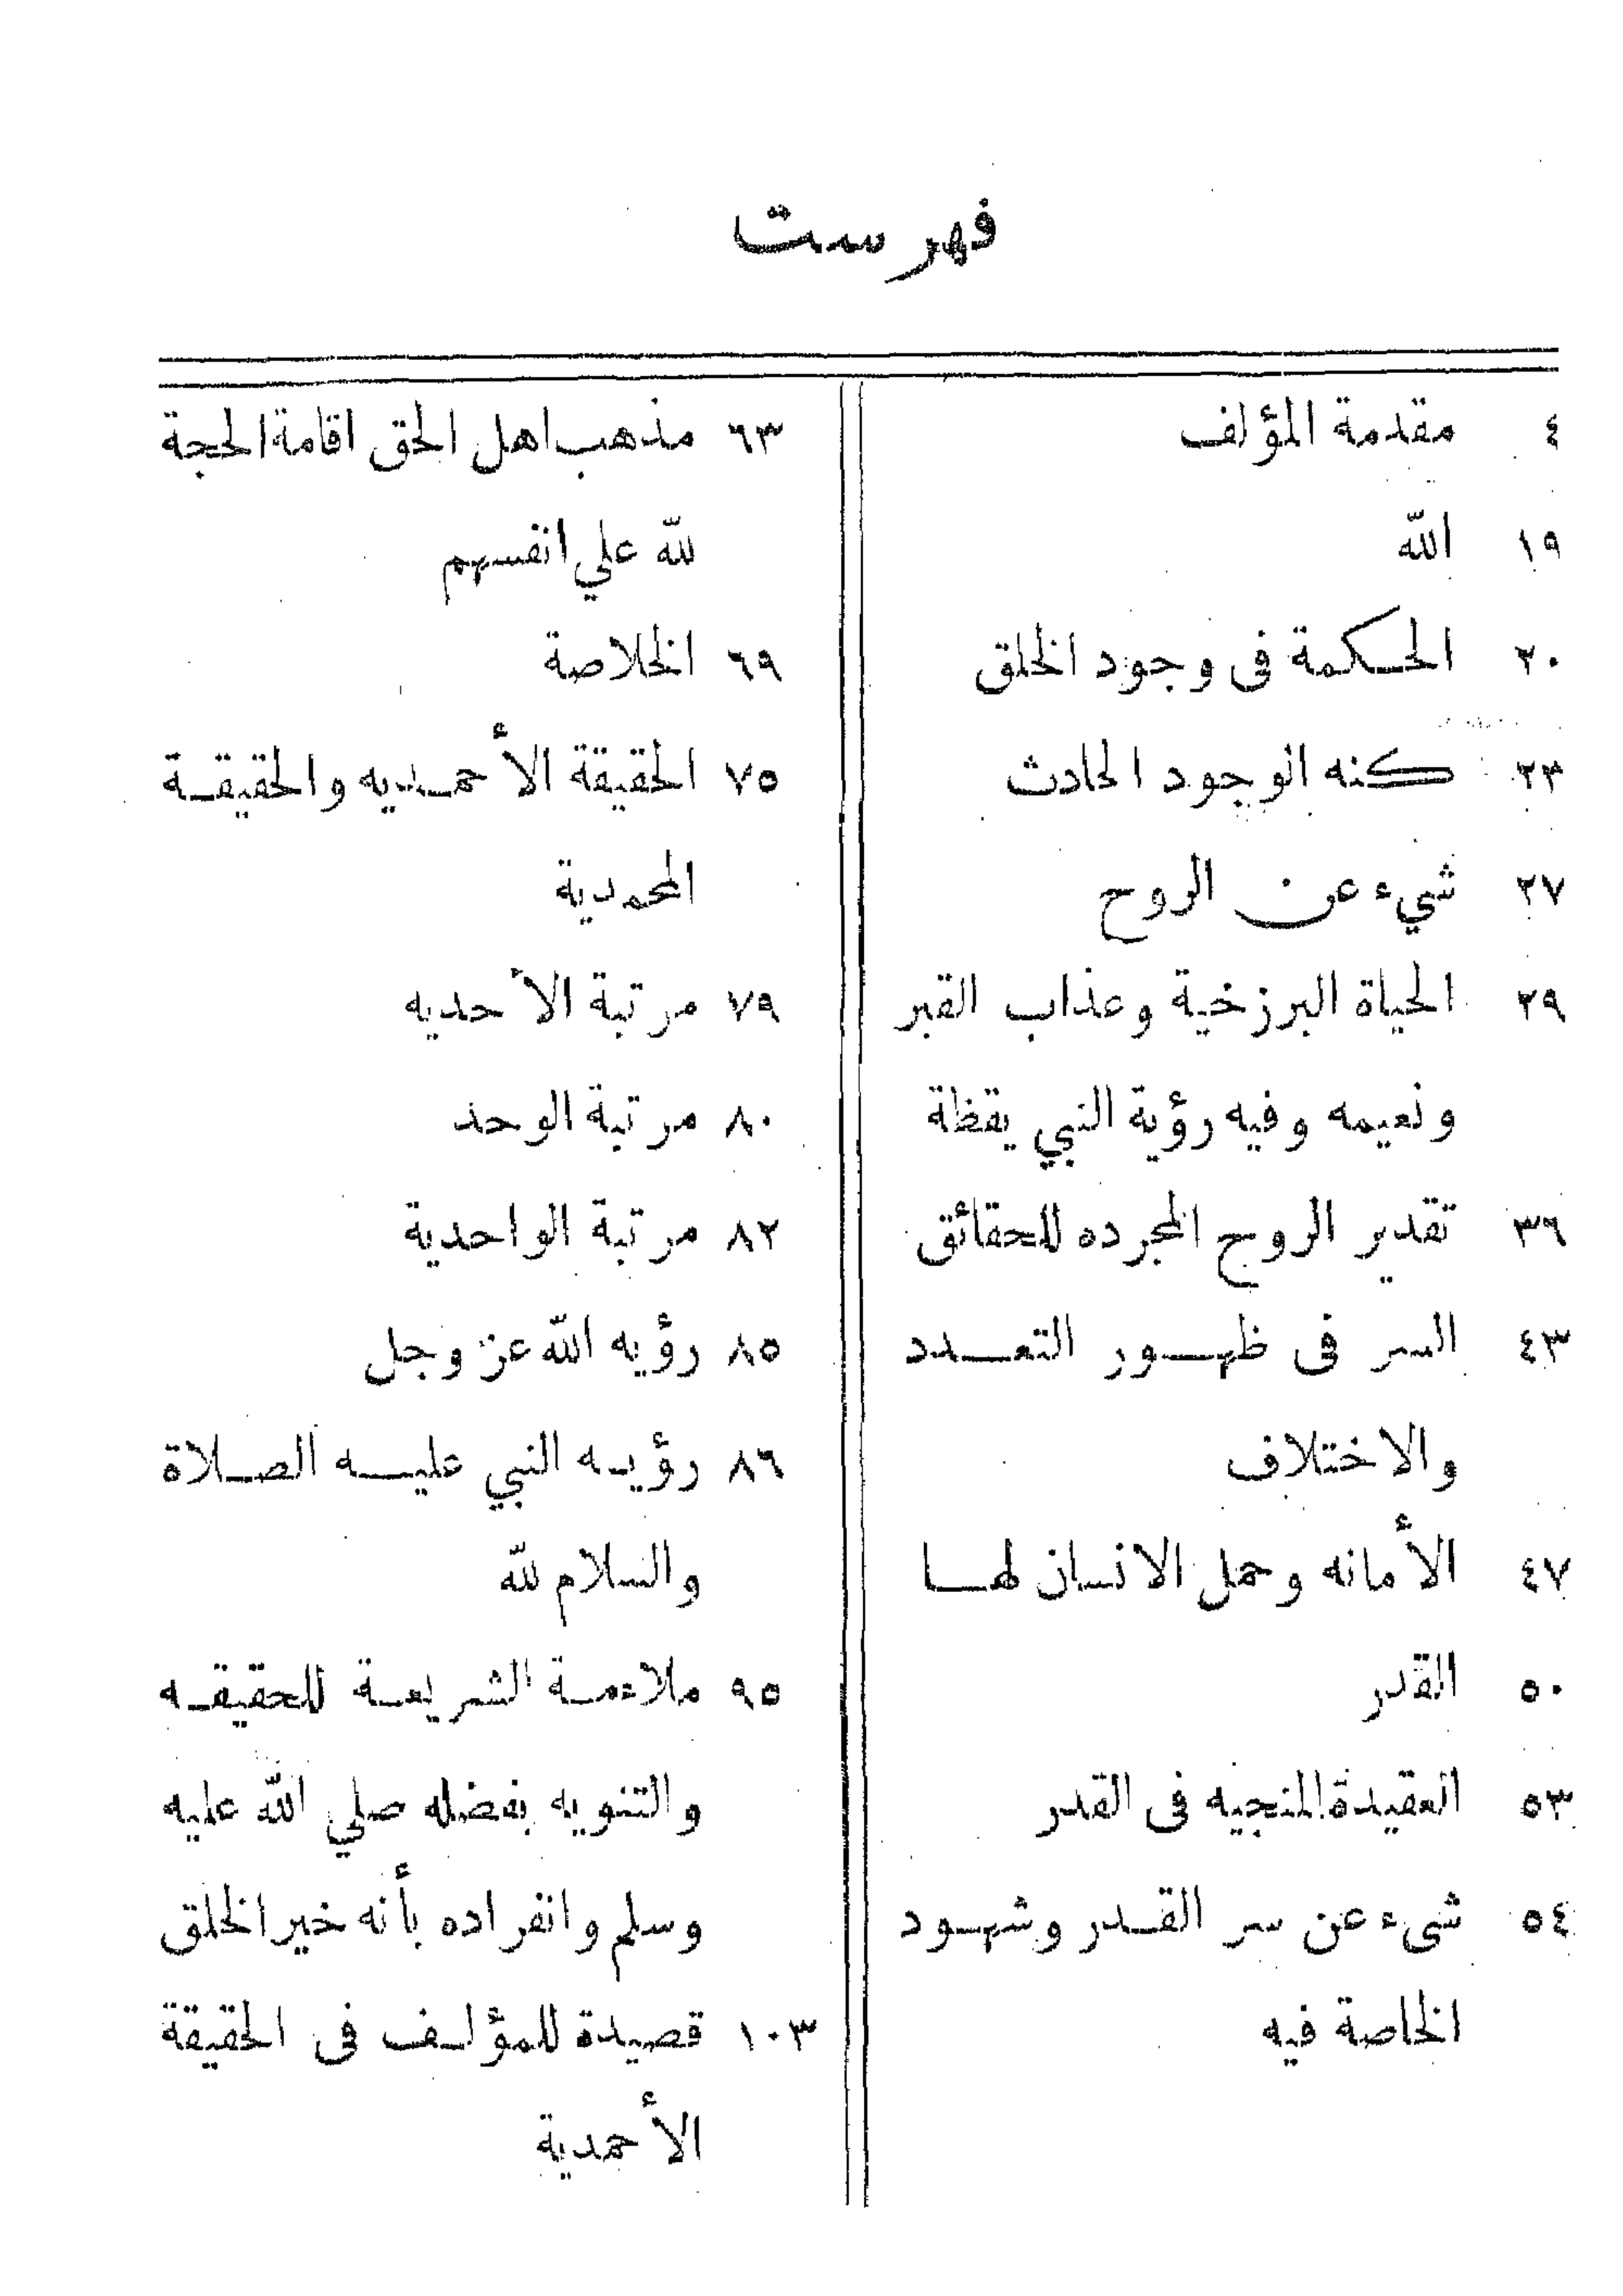 فهرست
٤ مقدمة المؤلف
١٩ الله
٢٠ الحكمة فى وجود الخلق
٢٣ كنه الوجود الحادث
٢٧ شيء عن الروح
٢٩ الحياة البرزخية وعذاب القبر
ونعيمه وفيه رؤية النبي يقظة
٣٦ تقدير الروح المجرده للحقائق
٤٣ السر فى ظهور التعدد
والاختلاف
٤٧ الأمانه وحمل الانسان لها
٥٠ القدر
٥٣ العقيدة المنجيه فى القدر
٥٤ شىء عن سر القدر وشهود
الخاصة فيه
٦٣ مذهب اهل الحق اقامة الحجة
لله علي انفسهم
٦٩ الخلاصة
٧٥ الحقيقة الأحمديه والحقيقة
المحمدية
٧٩ مرتبة الأحديه
٨٠ مرتبة الوحد
٨٢ مرتبة الواحدية
٨٥ رؤيه الله عز وجل
٨٦ رؤيه النبي عليه الصلاة
والسلام لله
٩٥ ملاءمة الشريعة للحقيقه
والتنويه بفضله صلي الله عليه
وسلم وانفراده بأنه خير الخلق
١٠٣ قصيدة للمؤلف فى الحقيقة
الأحمدية